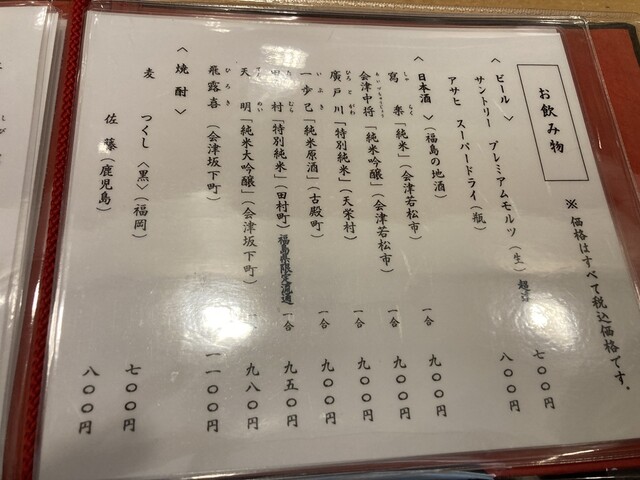 お飲み物
※価格はすべて税込価格です。
〈ビール〉
サントリー プレミアムモルツ（生） 七〇〇円
アサヒ スーパードライ（瓶） 八〇〇円
〈日本酒〉（福島の地酒）
寫楽「純米」（会津若松市） 一合 九〇〇円
会津中将「純米吟醸」（会津若松市） 一合 九〇〇円
廣戸川「特別純米」（天栄村） 一合 九〇〇円
一歩己「純米原酒」（古殿町） 一合 九〇〇円
村「特別純米」（田村町）福島県限定流通 一合 九五〇円
天明「純米大吟醸」（会津坂下町） 九八〇円
飛露喜（会津坂下町） 一一〇〇円
〈焼酎〉
麦 つくし〈黒〉（福岡） 七〇〇円
佐藤（鹿児島） 八〇〇円